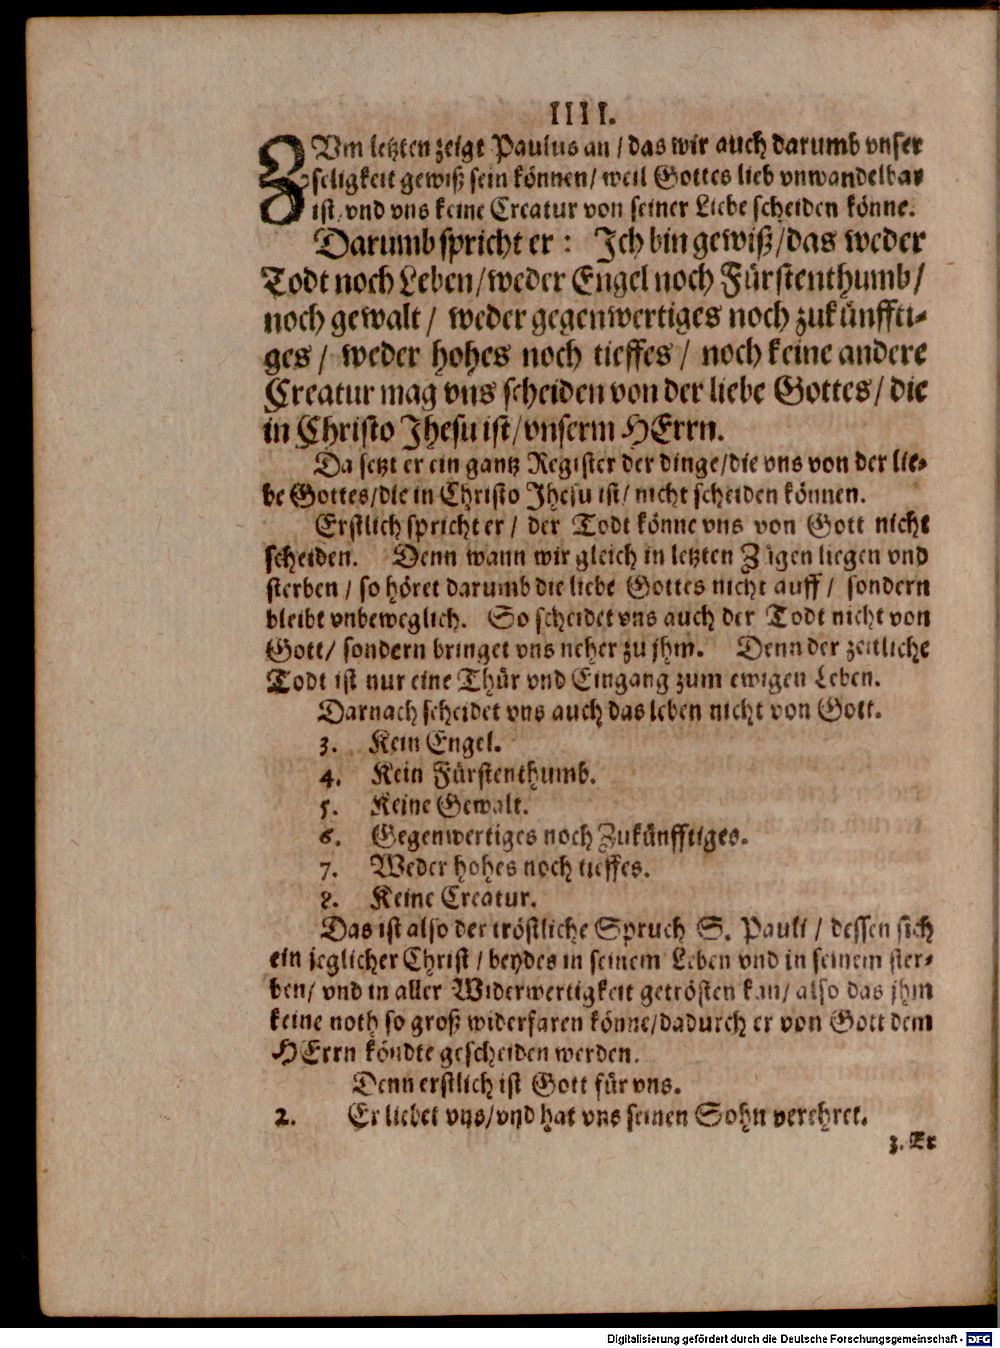 IIII.
ZVm letzten zeigt Paulus an / das wir auch darumb vnser
seligkeit gewiß sein können / weil Gottes lieb vnwandelbar
ist / vnd vns keine Creatur von seiner Liebe scheiden könne.
Darumb spricht er : Ich bin gewiß / das weder
Todt noch Leben / weder Engel noch Fürstenthumb /
noch gewalt / weder gegenwertiges noch zukünffti-
ges / weder hohes noch tieffes / noch keine andere
Creatur mag vns scheiden von der liebe Gottes / die
in Christo Jhesu ist / vnserm HErrn.
Da setzt er ein gantz Register der dinge / die vns von der lie-
be Gottes / die in Christo Jhesu ist / nicht scheiden können.
Erstlich spricht er / der Todt könne vns von Gott nicht
scheiden. Denn wann wir gleich in letzten Zügen liegen vnd
sterben / so höret darumb die liebe Gottes nicht auff / sondern
bleibt vnbeweglich. So scheidet vns auch der Todt nicht von
Gott / sondern bringet vns neher zu jhm. Denn der zeitliche
Todt ist nur eine Thür vnd Eingang zum ewigen Leben.
Darnach scheidet vns auch das leben nicht von Gott.
3. Kein Engel.
4. Kein Fürstenthumb.
5. Keine Gewalt.
6. Gegenwertiges noch Zukünfftiges.
7. Weder hohes noch tieffes.
8. Keine Creatur.
Das ist also der tröstliche Spruch S. Pauli / dessen sich
ein jeglicher Christ / beydes in seinem Leben vnd in seinem ster-
ben / vnd in aller Widerwertigkeit getrösten kan / also das jhm
keine noth so groß widerfaren könne / dadurch er von Gott dem
HErrn köndte gescheiden werden.
Denn erstlich ist Gott für vns.
2. Er liebet vns / vnd hat vns seinen Sohn verehret.
3. Er
Digitalisierung gefördert durch die Deutsche Forschungsgemeinschaft - DFG